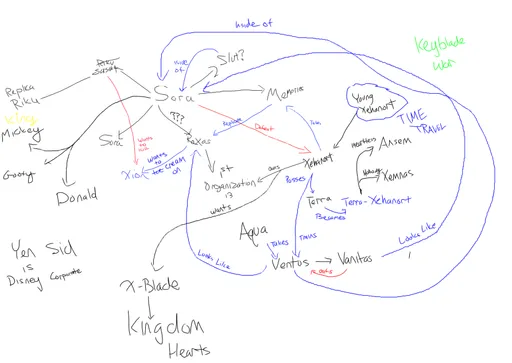 inside of
Keyblade
War
inside
of
Slut?
Riku
Replica
Riku
Sora
Memories
Young
Xehanort
TIME
TRAVEL
King
Mickey
???
Replica
Defeat
Sora
Wants
to
Kill
Roxas
Ansem
Xehanort
Goofy
Xion
Wants
to
Ice Cream
on
is in
Organization
13
owns
Xemnas
Donald
wants
Possess
Terra
Becomes
Terra-Xehanort
Aqua
Looks Like
Yen Sid
is
Disney Corporate
Looks Like
Takes
Trains
Ventus
Vanitas
X-Blade
Kingdom
Hearts